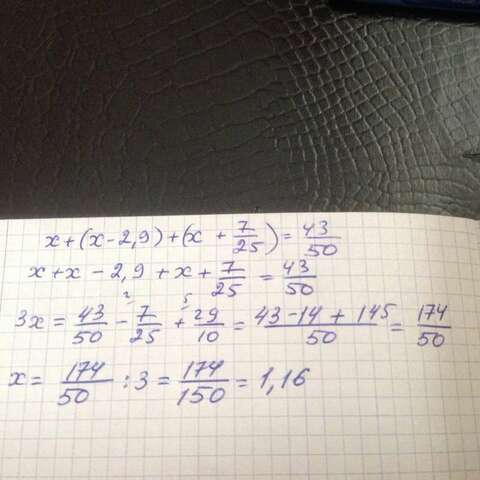 x+(x-2,9)+(x+7/25)=43/50
x+x-2,9+x+7/25=43/50
3x=43/50-7/25+29/10=43-14+145/50=174/50
x=174/50:3=174/150=1,16